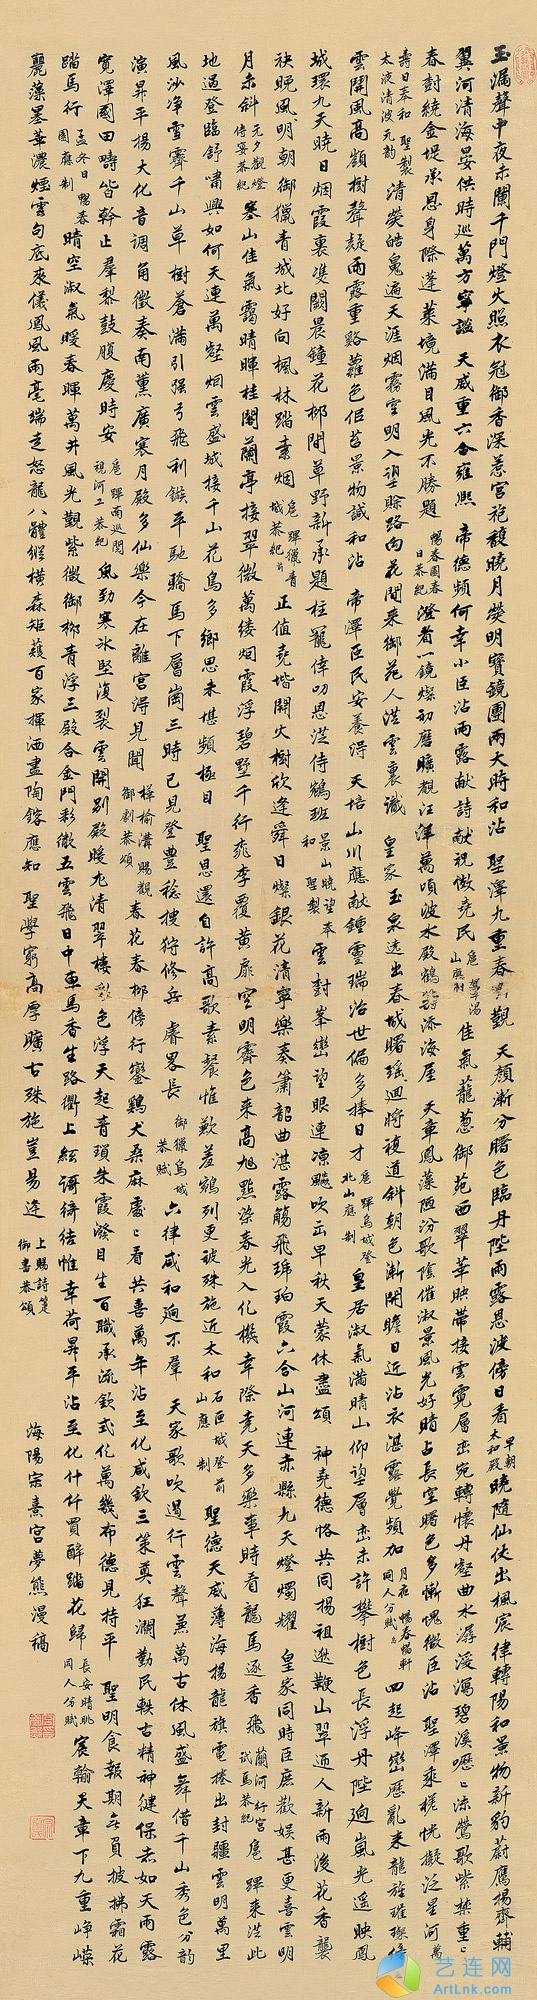 玉漏聲中夜未闌千門燈火照衣冠御香深惹宮袍馥曉月熒明寶鏡團雨大時和沾 聖澤九重春 觀 天顏漸分曙色臨丹陛雨露恩波傍日看早朝太和殿曉隨仙仗出楓宸律轉陽和景物新豹蔚鷹揚齊輔
翼河清海晏供時巡萬方寧謐 天威重六合雍熙 帝德頻何幸小臣沾雨露献詩献祝倣堯民 佳氣蘢葱御苑西翠華映帶接雲霓層巒宛轉懷丹壑曲水潺湲瀉碧溪嚦嚦流鶯歌紫禁重重
春樹繞金堤承恩身際蓬萊境滿目風光不勝題暢春園春日恭紀澄看一鏡燦初磨曠觀汪洋萬頃波水殿鶴籌添海屋 天章鳳藻陋汾歌陰催淑景風光好晴占長空曙色多慚愧微臣沾 聖澤乘槎恍擬泛星河萬
壽日奉和 聖製太液清波元韵 清熒皓魄遍天涯烟霧空明入 賒路向花間来御苑人從雲裏識 皇家玉泉遶出春城曙瑤迴將複道斜朝色漸開瞻日近沾衣湛露覺頻加月夜 暢春暢軒同人分賦 四起峰巒歷亂来龍旌璀璨
雲開風高嶺樹聲 雨露重 蘿色 苔景物誠和沾 帝澤臣民安養得 天培山川應献鍾靈瑞治世偏多捧日才扈蹕烏城登北山應制 皇居淑氣滿晴山仰望層巒未許攀樹色長浮丹陛迥嵐光遥映鳳
城環九天曉日烟霞裏雙闕晨鐘花柳間草野新承題柱寵倖叨恩從侍鵷班景山曉望奉和 聖製 雲封峯巒望眼連凉飈吹 早秋天蒙休盡頌 神堯德恪共同揚祖逖鞭山翠迎人新雨後花香襲
袂晚風前明朝御獵青城北好向楓林踏素烟扈蹕獵青城恭紀 正值堯堦開火樹欣逢舜日燦銀花清寧樂奏簫韶曲湛露觴飛琥珀霞六合山河連赤縣九天燈燭耀 皇家同時臣庶歡娛甚更喜雲明
月未斜元夕觀燈侍宴恭紀 塞山佳氣靄晴暉桂閣蘭亭接翠微萬縷烟霞浮碧墅千行桃李覆黄扉空明霽色来高旭點染春光入化機幸際堯天多樂事時看龍馬逐香飛蘭河行宫試馬恭紀 扈蹕来從此
地過登臨舒嘯興如何天連萬壑烟雲盛城接千山花鳥多鄉思未堪頻極目 聖恩還自許高歌素餐惟歎羞鵷列更被殊施近太和石匣城登前山應制 聖德天威薄海揚龍旗電捲出封疆雲明萬里
風沙净雪霽千山草樹蒼滿引强弓飛利鏃平馳驕馬下層崗三時已見登豊稔搜狩修兵睿畧長御獵烏城恭賦 六律咸和迥不羣 天家歌吹遏行雲聲兼萬古休風盛舞借千山秀色分韵
演昇平揚大化音調角徵奏南薰廣寒月殿多仙樂今在離宮得見聞樺榆溝賜觀御劇恭頌 春花春柳傍行鑾鷄犬桑麻處處看共喜萬年沾至化咸欽三策奠狂瀾勤民軼古精神健保赤如天雨露
寬澤國田疇皆幹止羣黎鼓腹慶時安扈蹕南巡閱視河工恭紀 風勁寒氷堅復裂雲開別殿暖尤清翠樓 色浮天起青瑣朱霞潑目生百職承流欽式化萬幾布德見持平 聖明食報期無負披拂霜花
踏馬行孟冬日暢春園應制 晴空淑氣暖春暉萬井風光觀紫微御柳青浮三殿合金門彩徹五雲飛日中車馬香生路衢上絃謌綺結惟幸荷昇平沾至化什仟買醉踏花歸長安晴眺同人分賦 宸翰天章下九重峥嶸
麗藻墨華濃烟雲句底来儀鳳風雨毫端走怒龍八體縱横森矩蒦百家揮洒盡陶鎔應知 聖學窮高厚曠古殊施豈易逢上賜詩箑御書恭頌 海陽宗熹宫夢熊漫稿
艺连网
ArtLnk.com